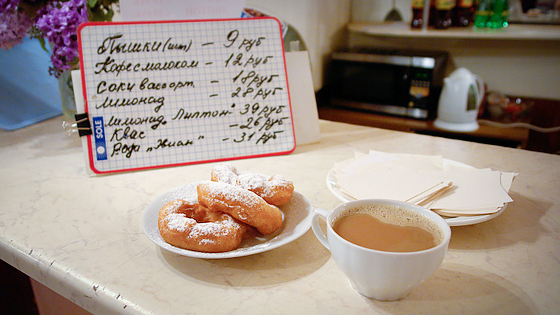 Пышки (шт) – 9 руб
Кофе с молоком – 12 руб
Соки в ассорт – 18 руб
Лимонад – 28 руб
Лимонад "Липтон" 39 руб
Квас – 26 руб
– 31 руб
SOLE